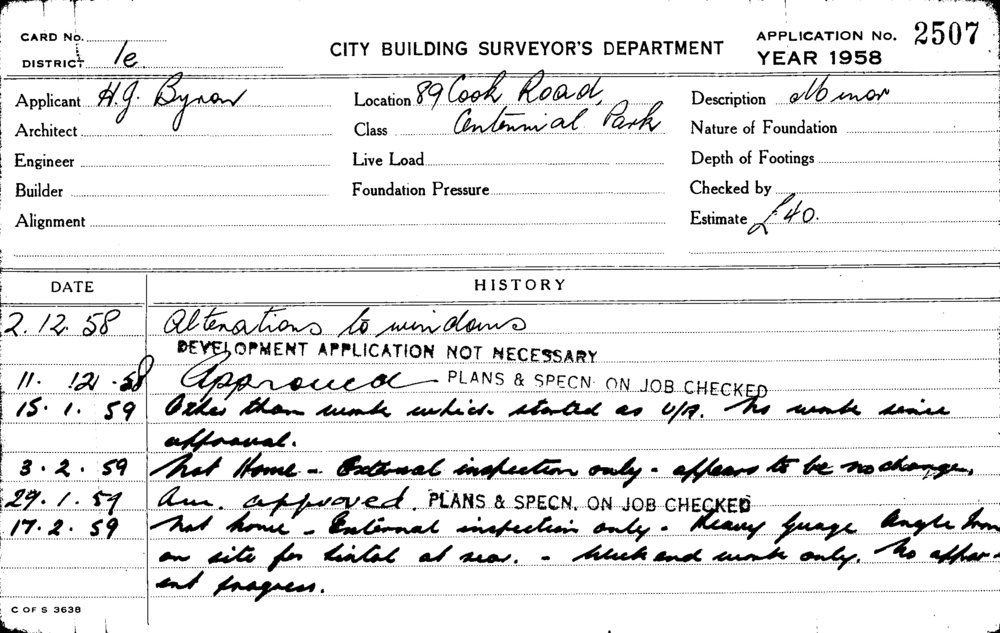 CARD No.
DISTRICT 1e
CITY BUILDING SURVEYOR'S DEPARTMENT
APPLICATION No. 2507
YEAR 1958
Applicant H.J. Byron
Location 89 Cook Road,
Description Minor
Architect
Class Centennial Park
Nature of Foundation
Engineer
Live Load
Depth of Footings
Builder
Foundation Pressure
Checked by
Alignment
Estimate £40.
DATE HISTORY
2.12.58 Alterations to windows
DEVELOPMENT APPLICATION NOT NECESSARY
11.12.58 Approved PLANS & SPECN. ON JOB CHECKED
15.1.59 Other than work which started as U/A. No work since
approval.
3.2.59 Not Home - External inspection only - appears to be no change.
29.1.59 Am. approved. PLANS & SPECN. ON JOB CHECKED
17.2.59 Not home - External inspection only - Heavy Guage Angle Iron
on site for lintol at rear. - Week end work only. No appar-
ent progress.
C OF S 3638